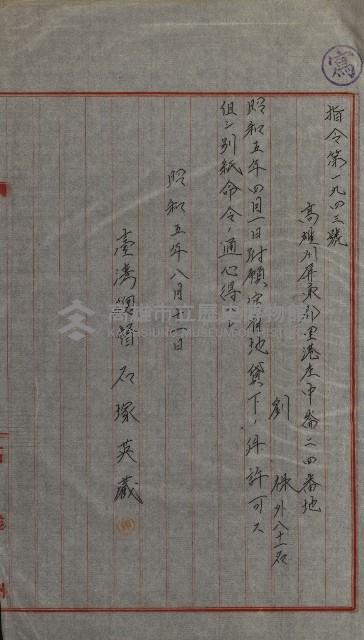 寫
指令第一九四三號
高雄州屏東郡里港庄中崙二四番地
劉 外八十一名
昭和五年四月一日附願官有地貸下ノ件許可ス
但シ別紙命令ノ通心得ヘシ
昭和五年八月十一日
臺灣總督石塚英藏
高雄市立歷史博物館
KAOHSIUNG MUSEUM OF HISTORY